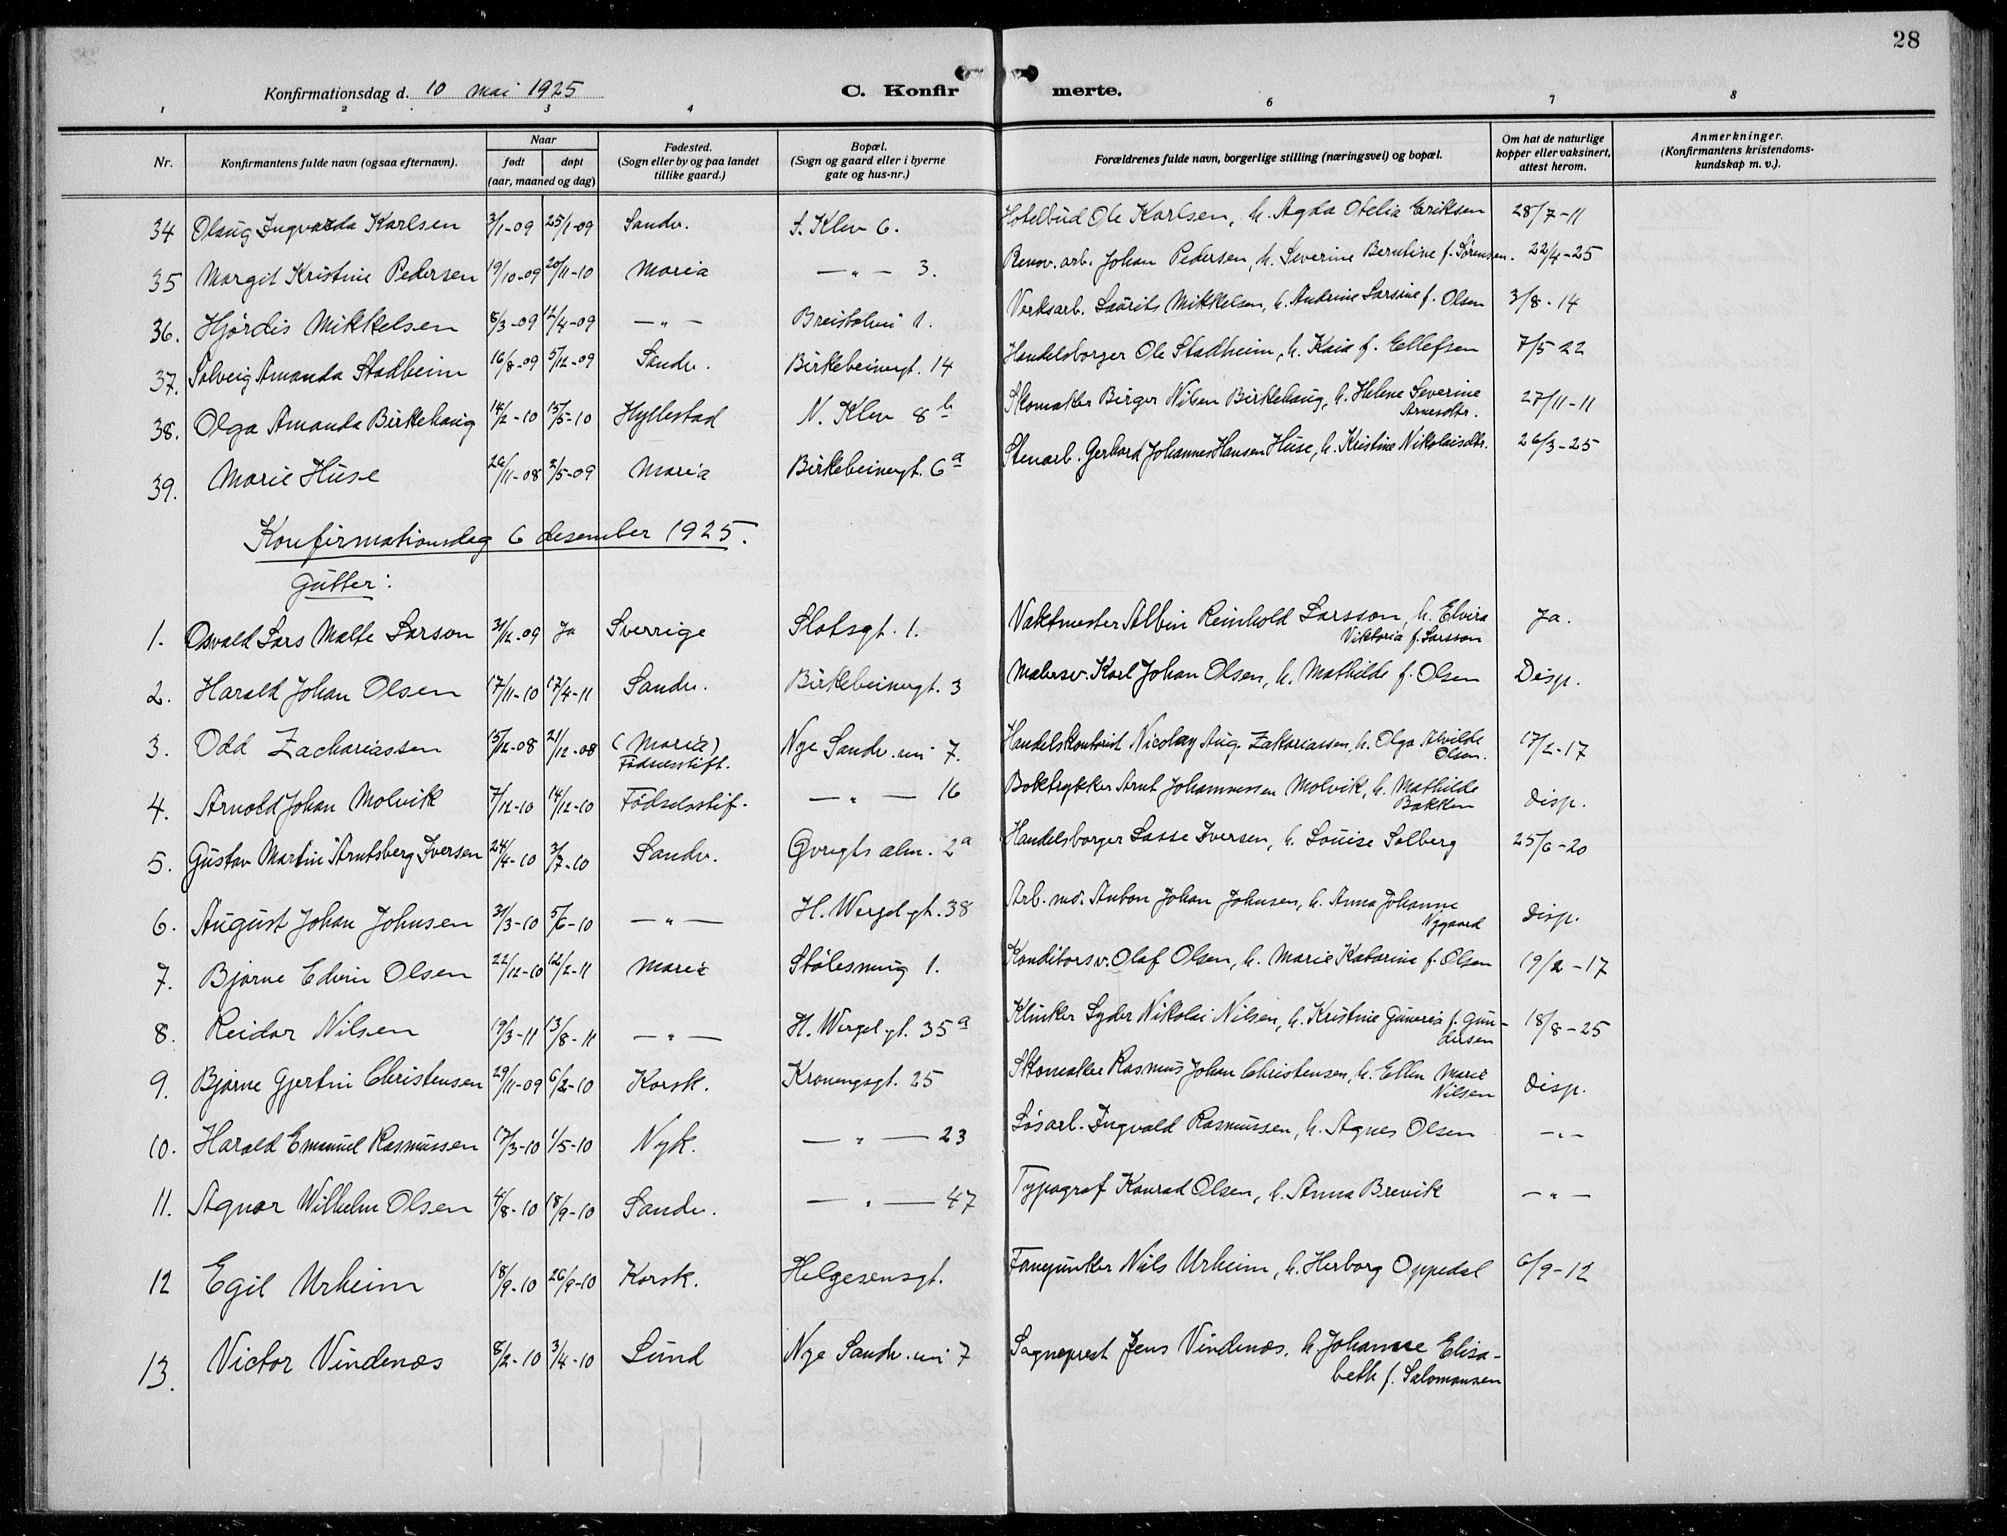 28
Konfirmationsdag d. 10 mai 1925
C. Konfirmerte.
1 2 3 4 6 7 8
Nr.
Konfirmantens fulde navn (ogsaa efternavn).
Naar
født døpt
(aar, maaned og dag)
Fødested.
(Sogn eller by og paa landet
tillike gaard.)
Bopæl.
(Sogn og gaard eller i byerne
gate og hus-nr.)
Forældrenes fulde navn, borgerlige stilling (næringsvei) og bopæl.
Om hat de naturlige
kopper eller vaksinert,
attest herom.
Anmerkninger.
(Konfirmantens kristendoms-
kundskap m. v.).
34 Olaug Ingvarda Karlsen 3/1-09 25/1-09 Sandv. S. Klev 6. Hotelbud Ole Karlsen, h. Agda Ofelia Eriksen 28/7-11
35 Margit Kristine Pedersen 19/10-09 20/11-10 Maria — " — 3. Renov. arb. Johan Pedersen, h. Severine Berntine f. Sørensen. 22/4-25
36. Hjørdis Mikkelsen 8/3-09 12/4-09 — " — Breistølen 1. Verksarb. Laurits Mikkelsen, h. Andrine Larsine f. Olsen 3/8-14
37. Solveig Amanda Stadheim 16/8-09 5/12-09 Sandv. Birkebeinergt. 14 Handelsborger Ole Stadheim, h. Kaia f. Ellefsen 7/5 22
38. Olga Amanda Birkehaug 14/2-10 15/5-10 Hyllestad N. Klev 8b Skomaker Birger Nilsen Birkehaug, h. Helene Severine
Arnesdtr. 27/11-11
39. Marie Huse 26/11-08 2/5-09 Maria Birkebeinergt. 6a Stenarb. Gerhard Johannes Hansen Huse, h. Kristine Nikolaisdtr. 26/3-25
Konfirmationsdag 6 desember 1925.
Gutter:
1. Osvald Lars Malte Larson 31/12-09 Ja Sverrige Slotsgt. 1. Vaktmester Albin Reinhold Larsson, h. Elvira
Viktoria f. Larsson Ja.
2. Harald Johan Olsen 17/11-10 17/4-11 Sandv. Birkebeinergt. 3 Malersv. Karl Johan Olsen, h. Mathilde f. Olsen Disp.
3. Odd Zachariassen 15/12-08 21/12-08 (Maria)
Fødselsstift. Nye Sandv. vei 7. Handelskontorist Nicolay Aug. Zakariassen, h. Olga Alvilde
Olsen. 17/2-17
4. Arnold Johan Molvik 7/12-10 14/12-10 Fødselsstif. — " — 16 Boktrykker Arnt Johannessen Molvik, h. Mathilde
Bakken Disp.
5. Gustav Martin Arntsberg Iversen 24/4-10 3/7-10 Sandv. Øvregts alm. 2a Handelsborger Lasse Iversen, h. Louise Solberg 25/6-20
6. August Johan Johnsen 31/3-10 5/6-10 — " — H. Wergel. gt. 38 Arb. md. Anton Johan Johnsen, h. Anna Johanne
Nygaard Disp.
7. Bjarne Edvin Olsen 22/12-10 12/2-11 Maria Stølesmug 1. Konditorsv. Olaf Olsen, h. Marie Katarina f. Olsen 19/2-17
8. Reidar Nilsen 19/3-11 13/8-11 — " — H. Wergel. gt. 35a Klinker Syder Nikolai Nilsen, h. Kristine Guneria f. Gun-
dersen 18/8-25
9. Bjarne Gjertin Christensen 29/11-09 6/2-10 Korsk. Kronengsgt. 25 Skomaker Rasmus Johan Christensen, h. Ellen Marie
Nilsen Disp.
10. Harald Emanuel Rasmussen 17/3-10 1/5-10 Nyk. — " — 23 Løsarb. Ingvald Rasmussen, h. Agnes Olsen — " —
11. Agnar Wilhelm Olsen 4/8-10 18/9-10 Sandv. — " — 47 Typograf Konrad Olsen, h. Anna Brevik — " —
12 Egil Urheim 18/9-10 26/9-10 Korsk. Helgesensgt. Fanejunker Nils Urheim, h. Herborg Oppedal 6/9-12
13. Victor Vindenæs 8/2-10 3/4-10 Lund Nye Sandv. vei 7 Sogneprest Jens Vindenæs, h. Johanne Elisa-
beth f. Salomonsen